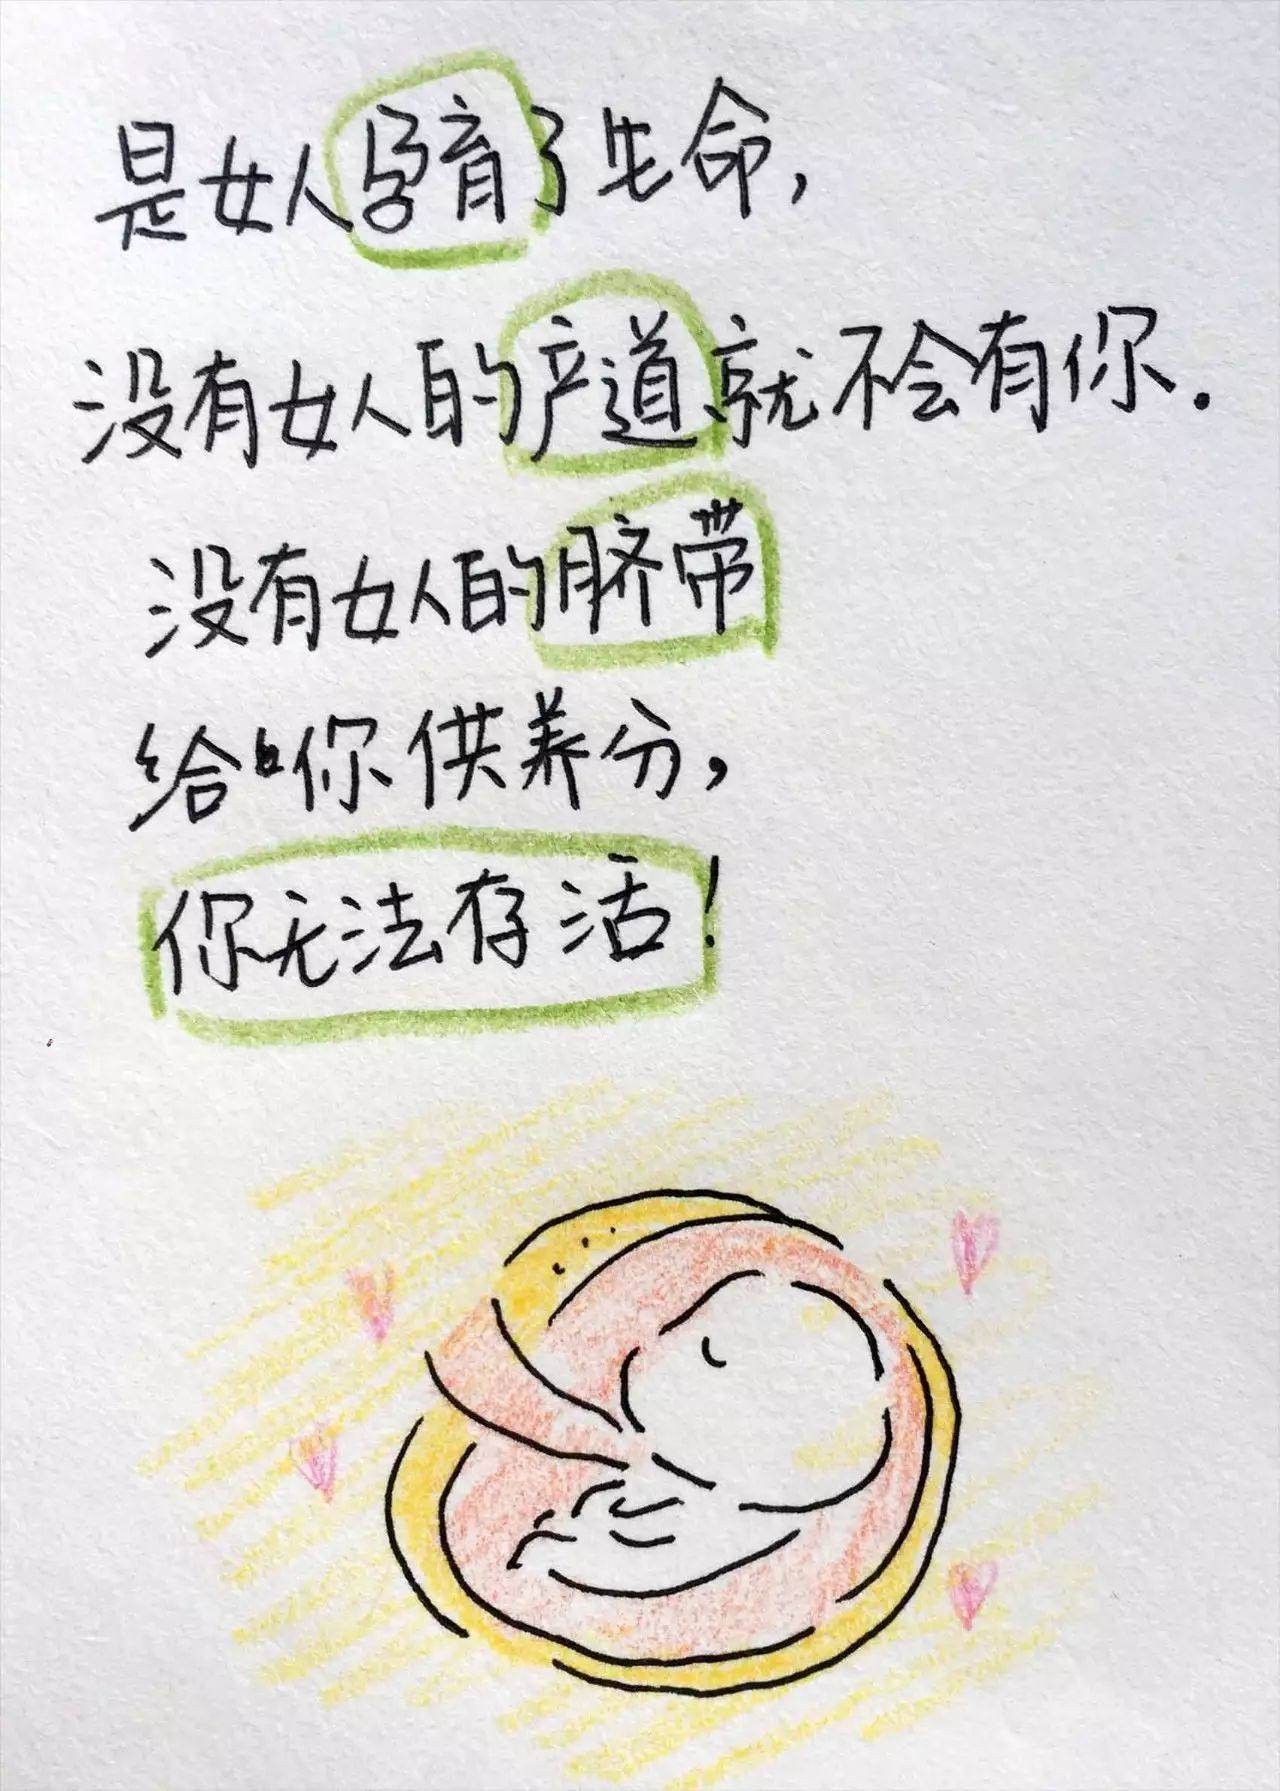 是女人孕育了生命,
没有女人的产道就不会有你.
没有女人的脐带
给你供养分,
你无法存活!